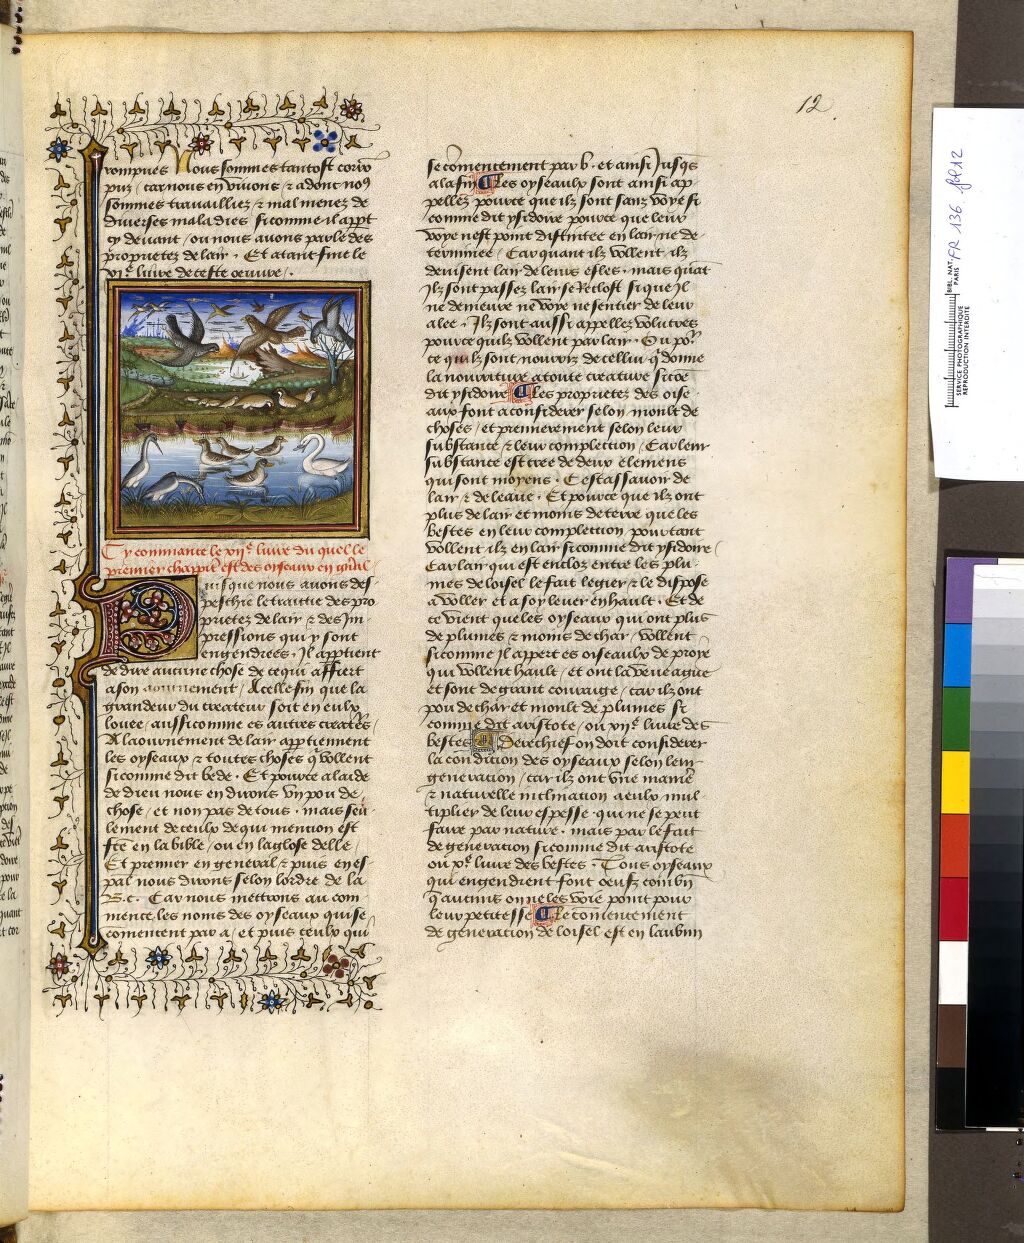 12
rompues Nous sommes tantost corrō
puz / car nous en vivons / ⁊ adonc noꝰ
sommes travailliez / ⁊ mal menez de
diverses maladies sicomme il appt
cy devant / ou nous avons parle des
proprietez de lair . Et atant fine le
livre de ceste oeuvre .
Cy commance le livre du quel le
premier chappitē est des oyseaux en gnāl
Puis que nous avons des
peschie le traictie des pro
prietez de lair / ⁊ des Im-
pressions qui y sont
engendrees . Il apptient
de dire aucune chose de ce qui affiert
a son aournement / A celle fin que la
grandeur du createur soit en eulx
louee / aussi comme es autres
A laournement de lair apptiennent
les oyseaux ⁊ toutes choses q̄ vollent
sicomme dit bede . Et pource a laide
de dieu nous en dirons vn pou de
chose / et non pas de tous . mais seu
lement de ceulx de qui mention est
fcē en la bible / ou en la glose delle /
Et premier en general / ⁊ puis en es
pāl nous dirons selon lordre de la
B. c . Car nous mettrons au com-
mence. les noms des oyseaux qui se
cōmencent par a / et puis ceulx qui
se cōmencement par b . et ainsi Jusqs
a la fin Les oyseaulx sont ainsi ap-
pellez pource que ilz sont sanz voye si
comme dit ysidoire pource que leur
voye nest point distinctee en lair ne de-
terminee / Car quant ilz vollent ilz
devisent lair de leurs esles . mais quāt
Ilz sont passez lair se Reclost si que Il
ne demeure ne voye ne sentier de leur
alee . Ilz sont aussi appellez volucres
pource quilz vollent par lair . Ou po
ce quilz sont nourriz de cellui q̄ donne
la nourriture a toute creature sicōe
dit ysidoire Les proprietez des oise-
aux sont a considerer selon moult de
choses / et premierement selon leur
substance / ⁊ leur complection / Car leur
substance est cree de deux elemens
qui sont moyens . C est assavoir de
lair ⁊ de leaue . Et pource que ilz ont
plus de lair et moins de terre que les
bestes en leur complection pourtant
vollent ilz en lair sicomme dit ysidoire /
Car lair qui est encloz entre les plu-
mes de loisel le fait legier / ⁊ le dispose
a voller et a soy lever en hault . Et de
ce vient que les oyseaux qui ont plus
de plumes / ⁊ moins de char / vollent
sicomme Il appert es oiseaulx de proye
qui vollent hault / et ont la veue ague
et sont de grant couraige / car ilz ont
pou de char et moult de plumes si
comme dit aristote / ou livre des
bestes Derechief on doit considerer
la condicion des oyseaux selon leur
generacion / car ilz ont vne maniē
⁊ naturelle inclinacion a eulx mul-
tiplier de leur espesse . qui ne se peut
faire par nature . mais par le fait
de generacion sicomme dit aristote
ou livre des bestes . Tous oyseaux
qui engendrent font oeufz combn̄
q̄ aucuns on ne les voie point pour
leur petitesse Le cōmencement
de generacion de loisel est en laubun
BIBL. NAT.
PARIS
FR 136 fol 12
SERVICE PHOTOGRAPHIQUE
REPRODUCTION INTERDITE